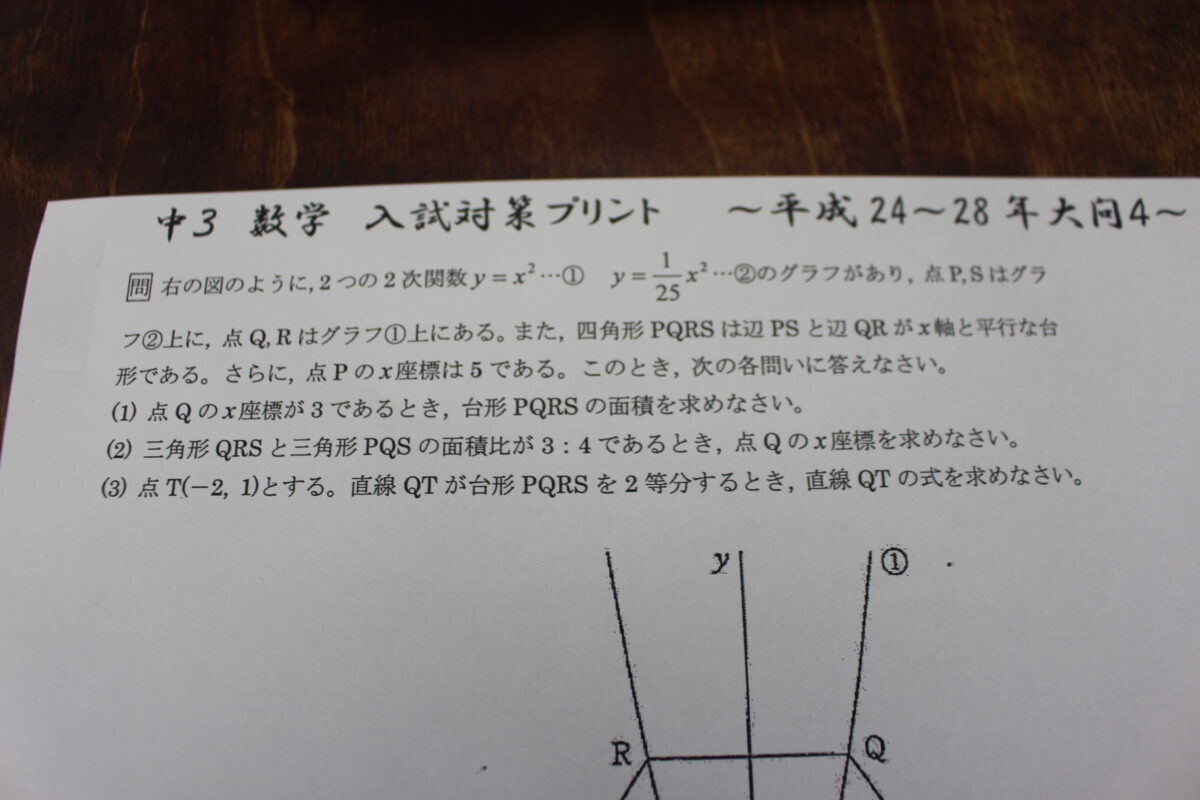 中3 数学 入試対策プリント ～平成24～28年大問4～
問 右の図のように，2つの2次関数 y＝x²…① y＝1/25x²…②のグラフがあり，点P,Sはグラ
フ②上に，点Q,Rはグラフ①上にある。また，四角形PQRSは辺PSと辺QRがx軸と平行な台
形である。さらに，点Pのx座標は5である。このとき，次の各問いに答えなさい。
(1) 点Qのx座標が3であるとき，台形PQRSの面積を求めなさい。
(2) 三角形QRSと三角形PQSの面積比が3：4であるとき，点Qのx座標を求めなさい。
(3) 点T(−2, 1)とする。直線QTが台形PQRSを2等分するとき，直線QTの式を求めなさい。
y ①
R Q